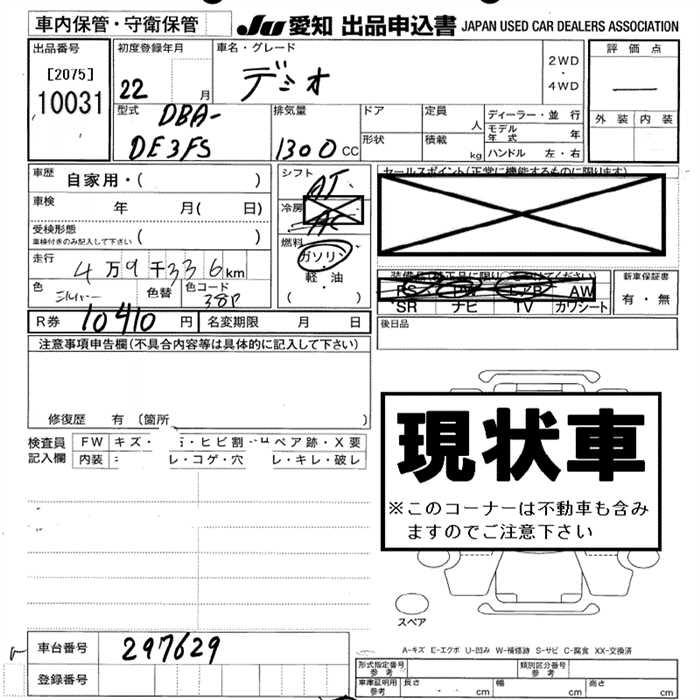 車内保管・守衛保管 JU 愛知 出品申込書 JAPAN USED CAR DEALERS ASSOCIATION
出品番号 初度登録年月 車名・グレード 2WD・4WD 評価点
[2075] 22 月 デミオ
10031 外装 内装
型式 DBA-DE3FS 排気量 1300 CC ドア 形状 定員 人 積載 kg ディーラー・並行
モデル年式 年
ハンドル 左・右
車歴 自家用・( ) シフト AT セールスポイント(正常に機能するものに限ります)
車検 年 月( 日) 冷房 AC
受検形態 車検付きのみ記入して下さい ( ) 燃料 ガソリン・軽油 ( )
走行 4万9千336km
色 シルバー 色替 色コード 38P
PS PW エアB AW
SR ナビ TV カワシート
新車保証書 有・無
R券 10410 円 名変期限 月 日 後日品
注意事項申告欄(不具合内容等は具体的に記入して下さい)
修復歴 有 (箇所 )
現状車
※このコーナーは不動車も含みますのでご注意下さい
検査員記入欄 FW キズ・ ・ヒビ割・ ペア跡・X要
内装 レ・コゲ・穴 レ・キレ・破レ
スペア
A-キズ E-エクボ U-凹み W-補修跡 S-サビ C-腐食 XX-交換済
車台番号 297629
登録番号
形式指定番号 参考 類別区分番号 参考
車庫証明用 参考 長さ cm 幅 cm 高さ cm